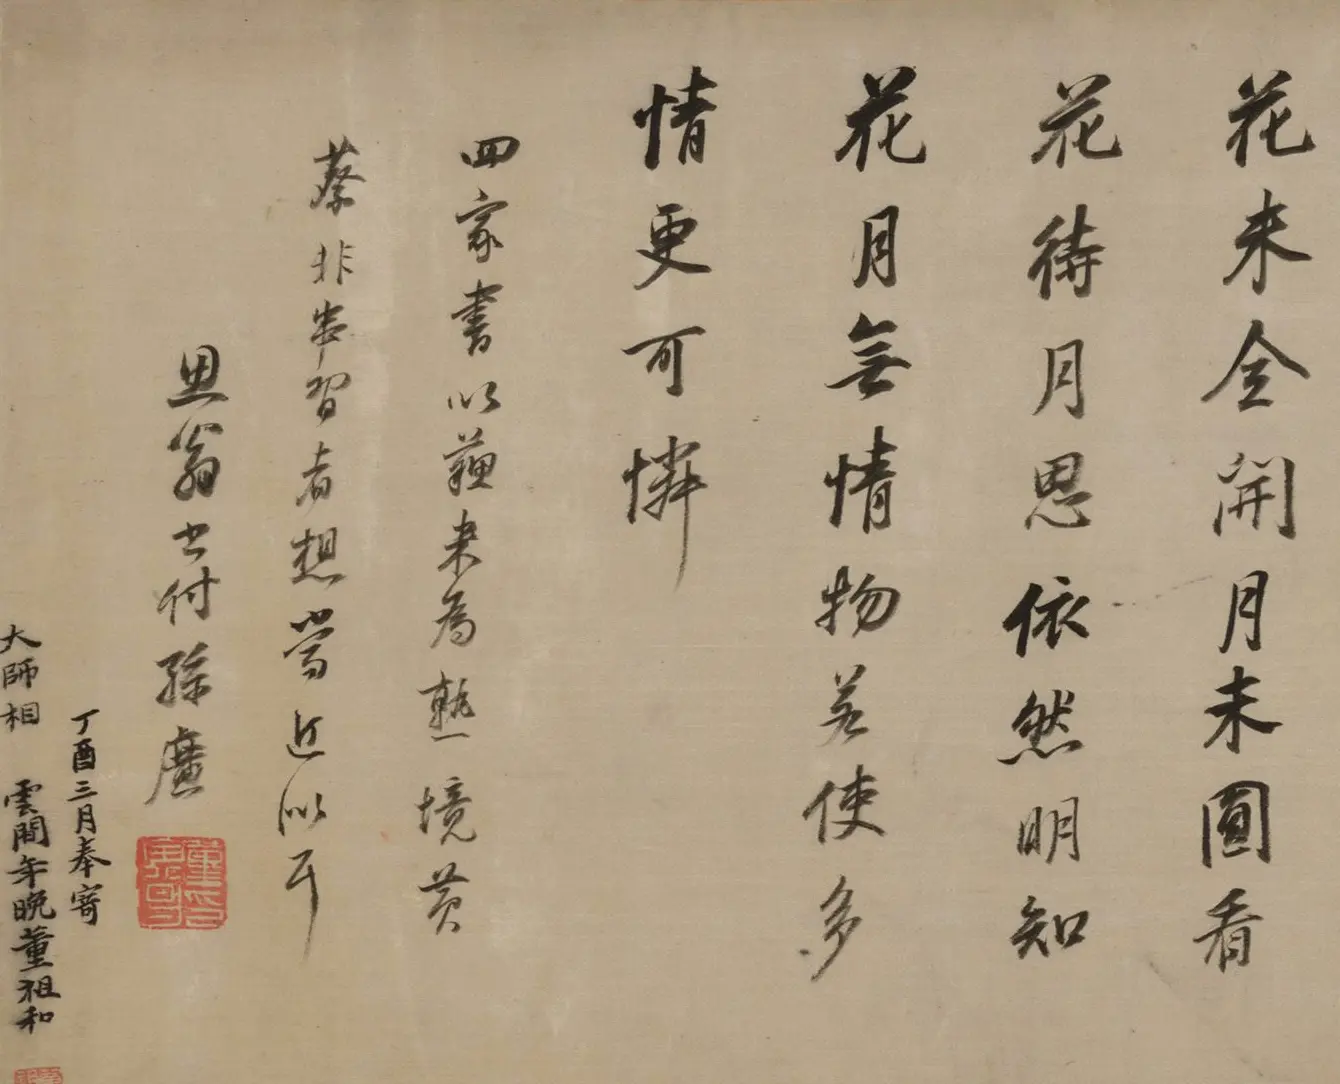 花未全開月未圓看
花待月思依然明知
花月無情物若使多
情更可憐
四家書以蘇米為熟境黃
蔡非串習者想當近似耳
思翁書付孫廣
丁酉三月奉寄
大師相 雲間年晚董祖和